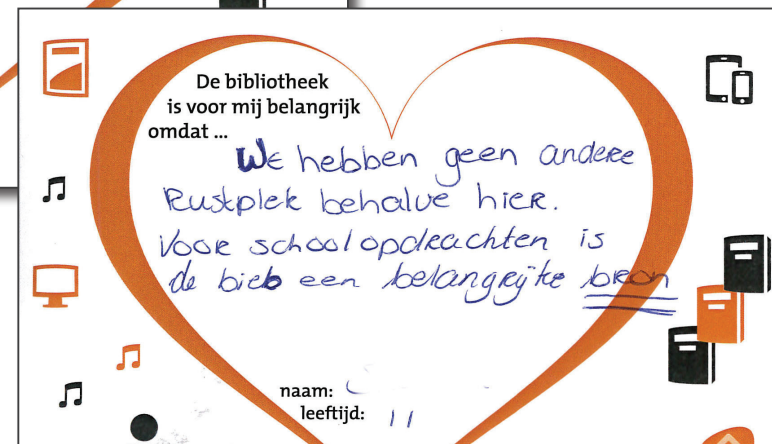 De bibliotheek
is voor mij belangrijk
omdat ...
We hebben geen andere
Rustplek behalve hier.
Voor schoolopdrachten is
de bieb een belangrijke bron
naam:
leeftijd: 11